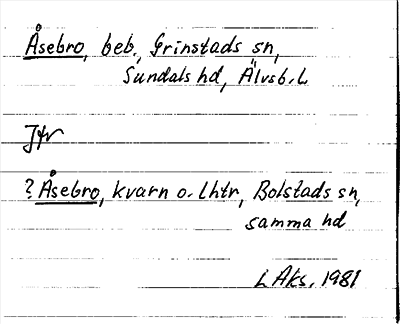 Åsebro, beb., Grinstads sn,
Sundals hd, Älvsb. L
Jfr
? Åsebro, kvarn o. lhtr, Bolstads sn,
samma hd
L Aks. 1981